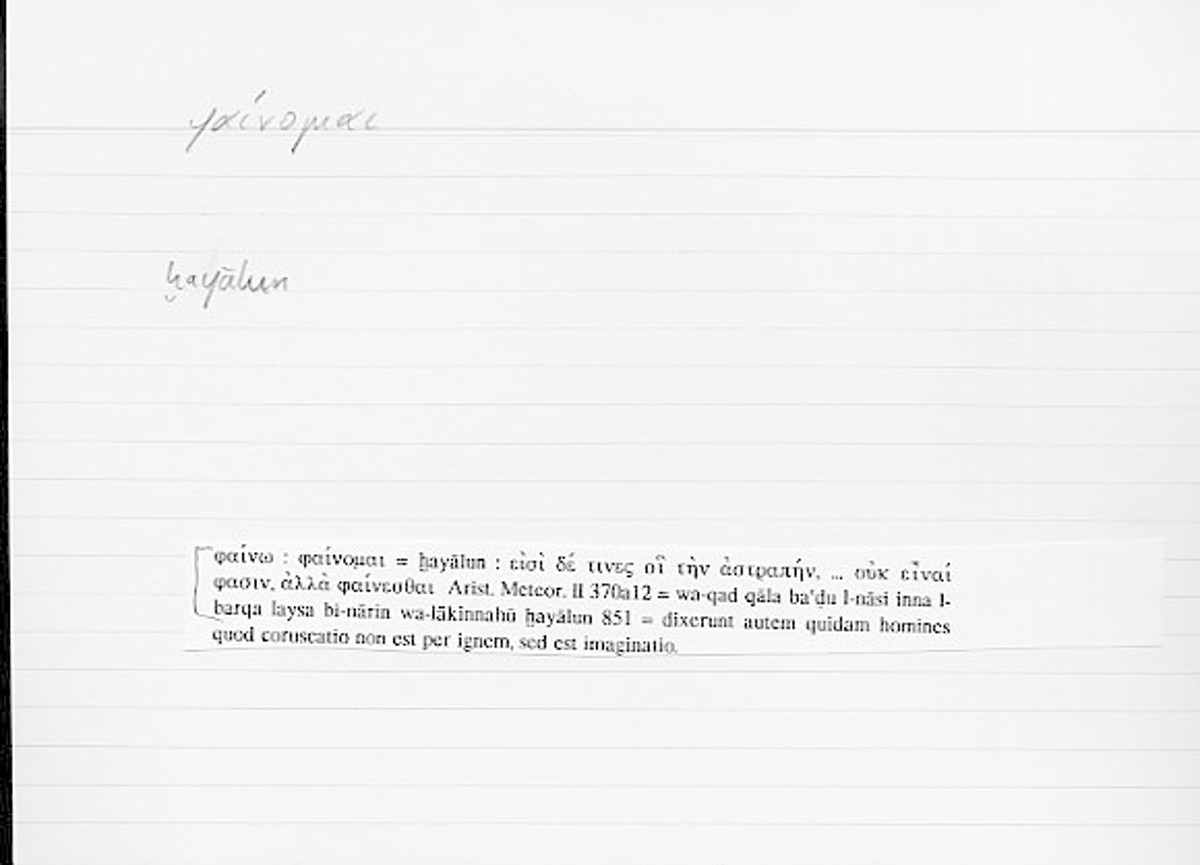 φαίνομαι
ḫayālun
φαίνω : φαίνομαι = ḫayālun : εἰσὶ δέ τινες οἳ τὴν ἀστραπήν, ... οὐκ εἶναί
φασιν, ἀλλὰ φαίνεσθαι Arist. Meteor. II 370a12 = wa-qad qāla ba'ḍu l-nāsi inna l-
barqa laysa bi-nārin wa-lākinnahū ḫayālun 851 = dixerunt autem quidam homines
quod coruscatio non est per ignem, sed est imaginatio.